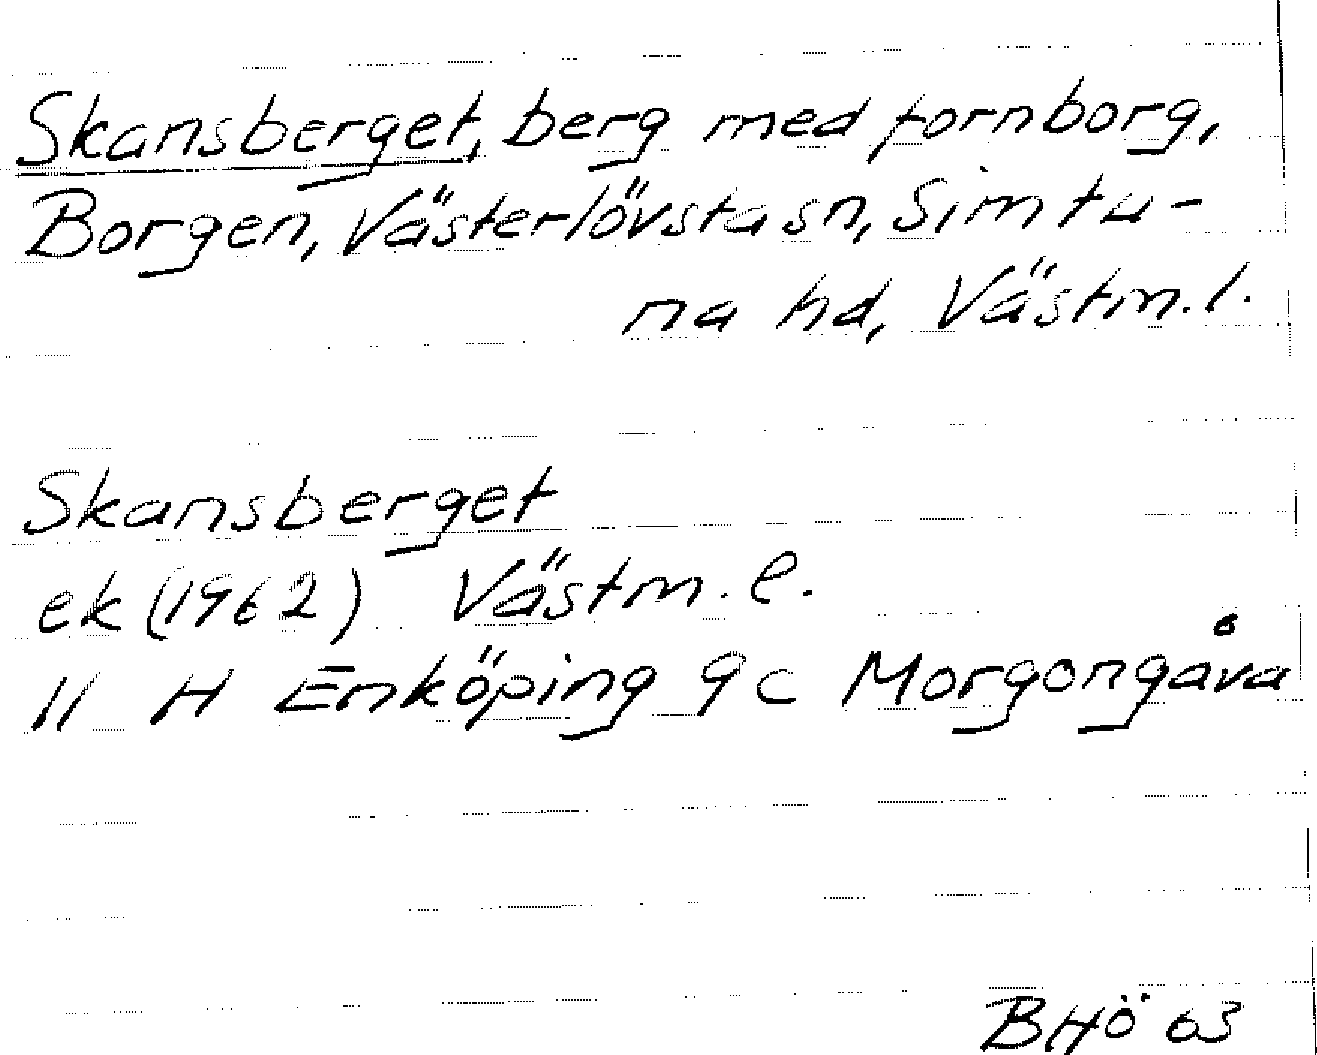 Skansberget, berg med fornborg,
Borgen, Västerlövsta sn, Simtu-
na hd, Västm. l.
Skansberget
ek (1962) Västm. l.
11 H Enköping 9c Morgongåva
BHÖ 63